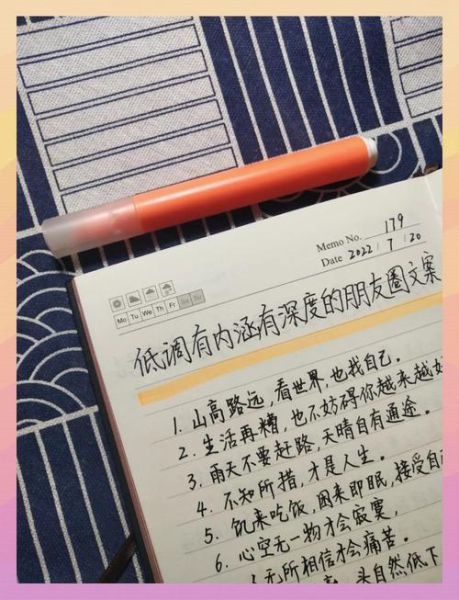 Memo No. 179
Date 2022 / 7 / 20
Mo Tu We Th Fr Sa Su
低调有内涵有深度的朋友圈文案
1. 山高路远,看世界,也找自己。
2. 生活再糟,也不妨碍你越来越好
3. 雨天不要赶路,天晴自有通途。
4. 不知所措,才是人生。
5. 饥来吃饭,困来即眠,接受自
6. 心空无一物才会寂寞,
无所相信才会痛苦。
头自然低下